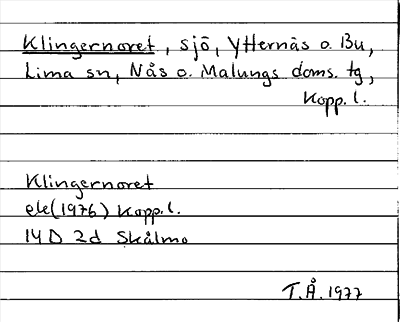 Klingernoret, sjö, Ytternäs o. Bu,
Lima sn, Nås o. Malungs doms. tg,
Kopp. l.
Klingernoret
ek (1976) Kopp. l.
14 D 2d Skålmo
T.Å. 1977